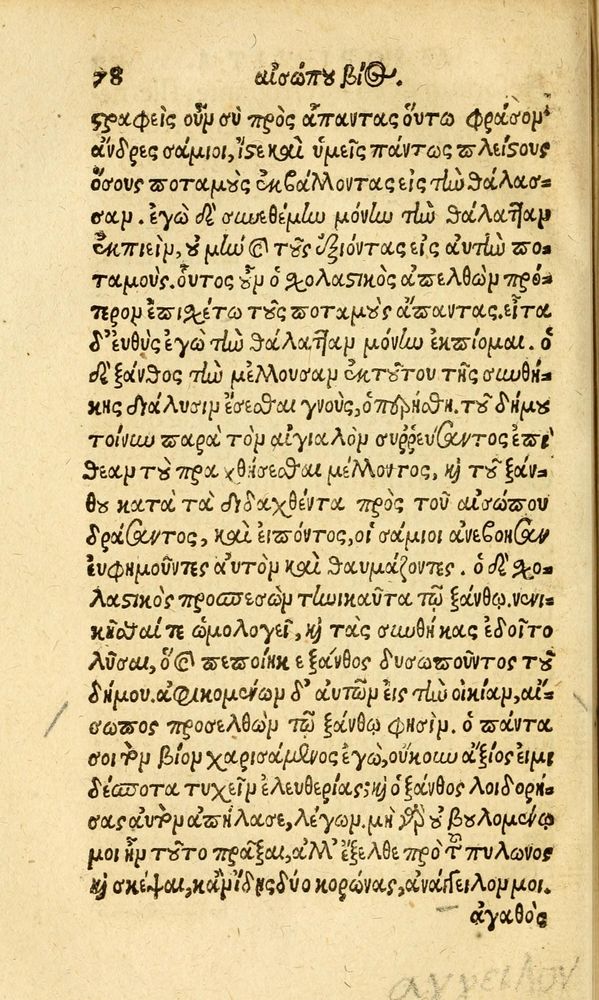 78 αἰσώπου βίος.
στραφεὶς οὖν σὺ πρὸς ἅπαντας οὕτω φράσον·
ἄνδρες σάμιοι, ἴστε καὶ ὑμεῖς πάντως πλείστους
ὅσους ποταμοὺς ἐκβάλλοντας εἰς τὴν θάλασ-
σαν. ἐγὼ δὲ συνεθέμην μόνην τὴν θάλατταν
ἐκπιεῖν, οὐ μὴν καὶ τοὺς ἐξιόντας εἰς αὐτὴν πο-
ταμούς. οὗτος οὖν ὁ σχολαστικὸς ἀπελθὼν πρό-
τερον ἐπισχέτω τοὺς ποταμοὺς ἅπαντας. εἶτα
δ' εὐθὺς ἐγὼ τὴν θάλατταν μόνην ἐκπίομαι. ὁ
δὲ ξάνθος τὴν μέλλουσαν ἐκ τούτου τῆς συνθή-
κης διάλυσιν ἔσεσθαι γνοὺς, ὑπερήσθη. τοῦ δήμου
τοίνυν παρὰ τὸν αἰγιαλὸν συρρεύσαντος ἐπὶ
θέαν τοῦ πραχθήσεσθαι μέλλοντος, καὶ τοῦ ξάν-
θου κατὰ τὰ διδαχθέντα πρὸς τοῦ αἰσώπου
δράσαντος, καὶ εἰπόντος, οἱ σάμιοι ἀνεβόησαν
εὐφημοῦντες αὐτὸν καὶ θαυμάζοντες. ὁ δὲ σχο-
λαστικὸς προσπεσὼν τηνικαῦτα τῷ ξάνθῳ, νενι-
κῆσθαί τε ὡμολογεῖ, καὶ τὰς συνθήκας ἐδεῖτο
λῦσαι, ὃ καὶ πεποίηκε ξάνθος δυσωποῦντος τοῦ
δήμου. ἀφικομένων δ' αὐτῶν εἰς τὴν οἰκίαν, αἴ-
σωπος προσελθὼν τῷ ξάνθῳ φησίν. ὁ πάντα
σοι τὸν βίον χαρισάμενος ἐγὼ, οὔκουν ἄξιός εἰμι
δέσποτα τυχεῖν ἐλευθερίας; καὶ ὁ ξάνθος λοιδορή-
σας αὐτὸν ἀπήλασε, λέγων. μὴ γὰρ οὐ βουλομένῳ
μοι ἦν τοῦτο πρᾶξαι, ἀλλ' ἔξελθε πρὸ τοῦ πυλῶνος
καὶ σκέψαι, κἂν ἴδῃς δύο κορώνας, ἀνάγγειλόν μοι.
ἀγαθὸς